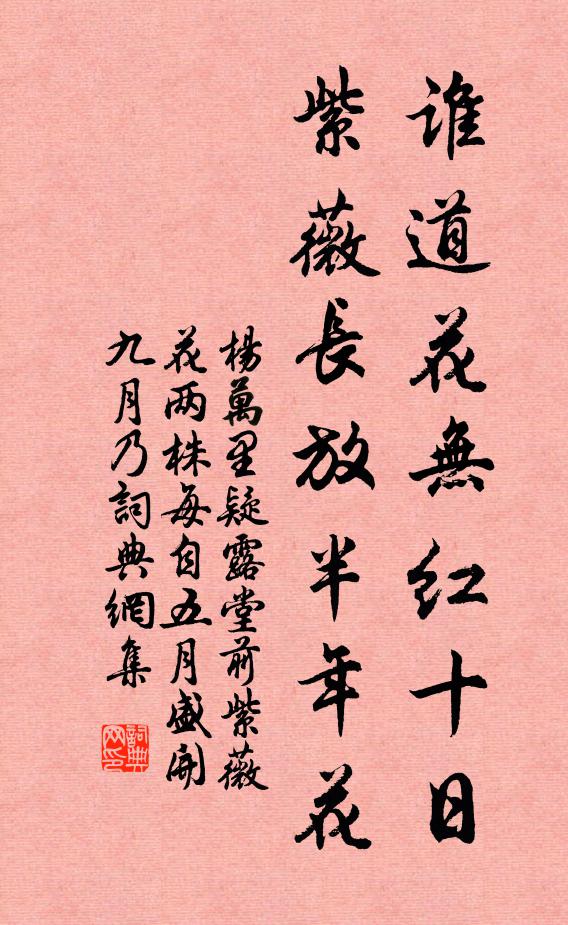 誰道花無紅十日
紫薇長放半年花
楊萬里疑露堂前紫薇
花两株每自五月盛開
九月乃詞典網集
詞典
网印